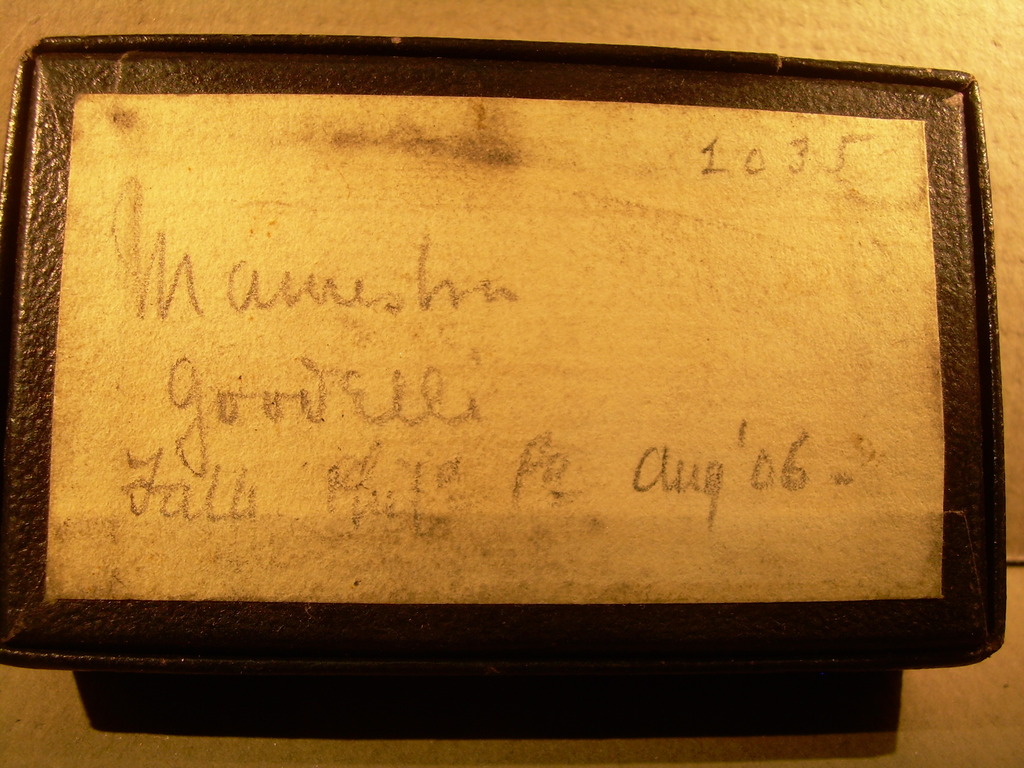 1035
Mamestra
Goodelli
Falls Phila Pa Aug '06.